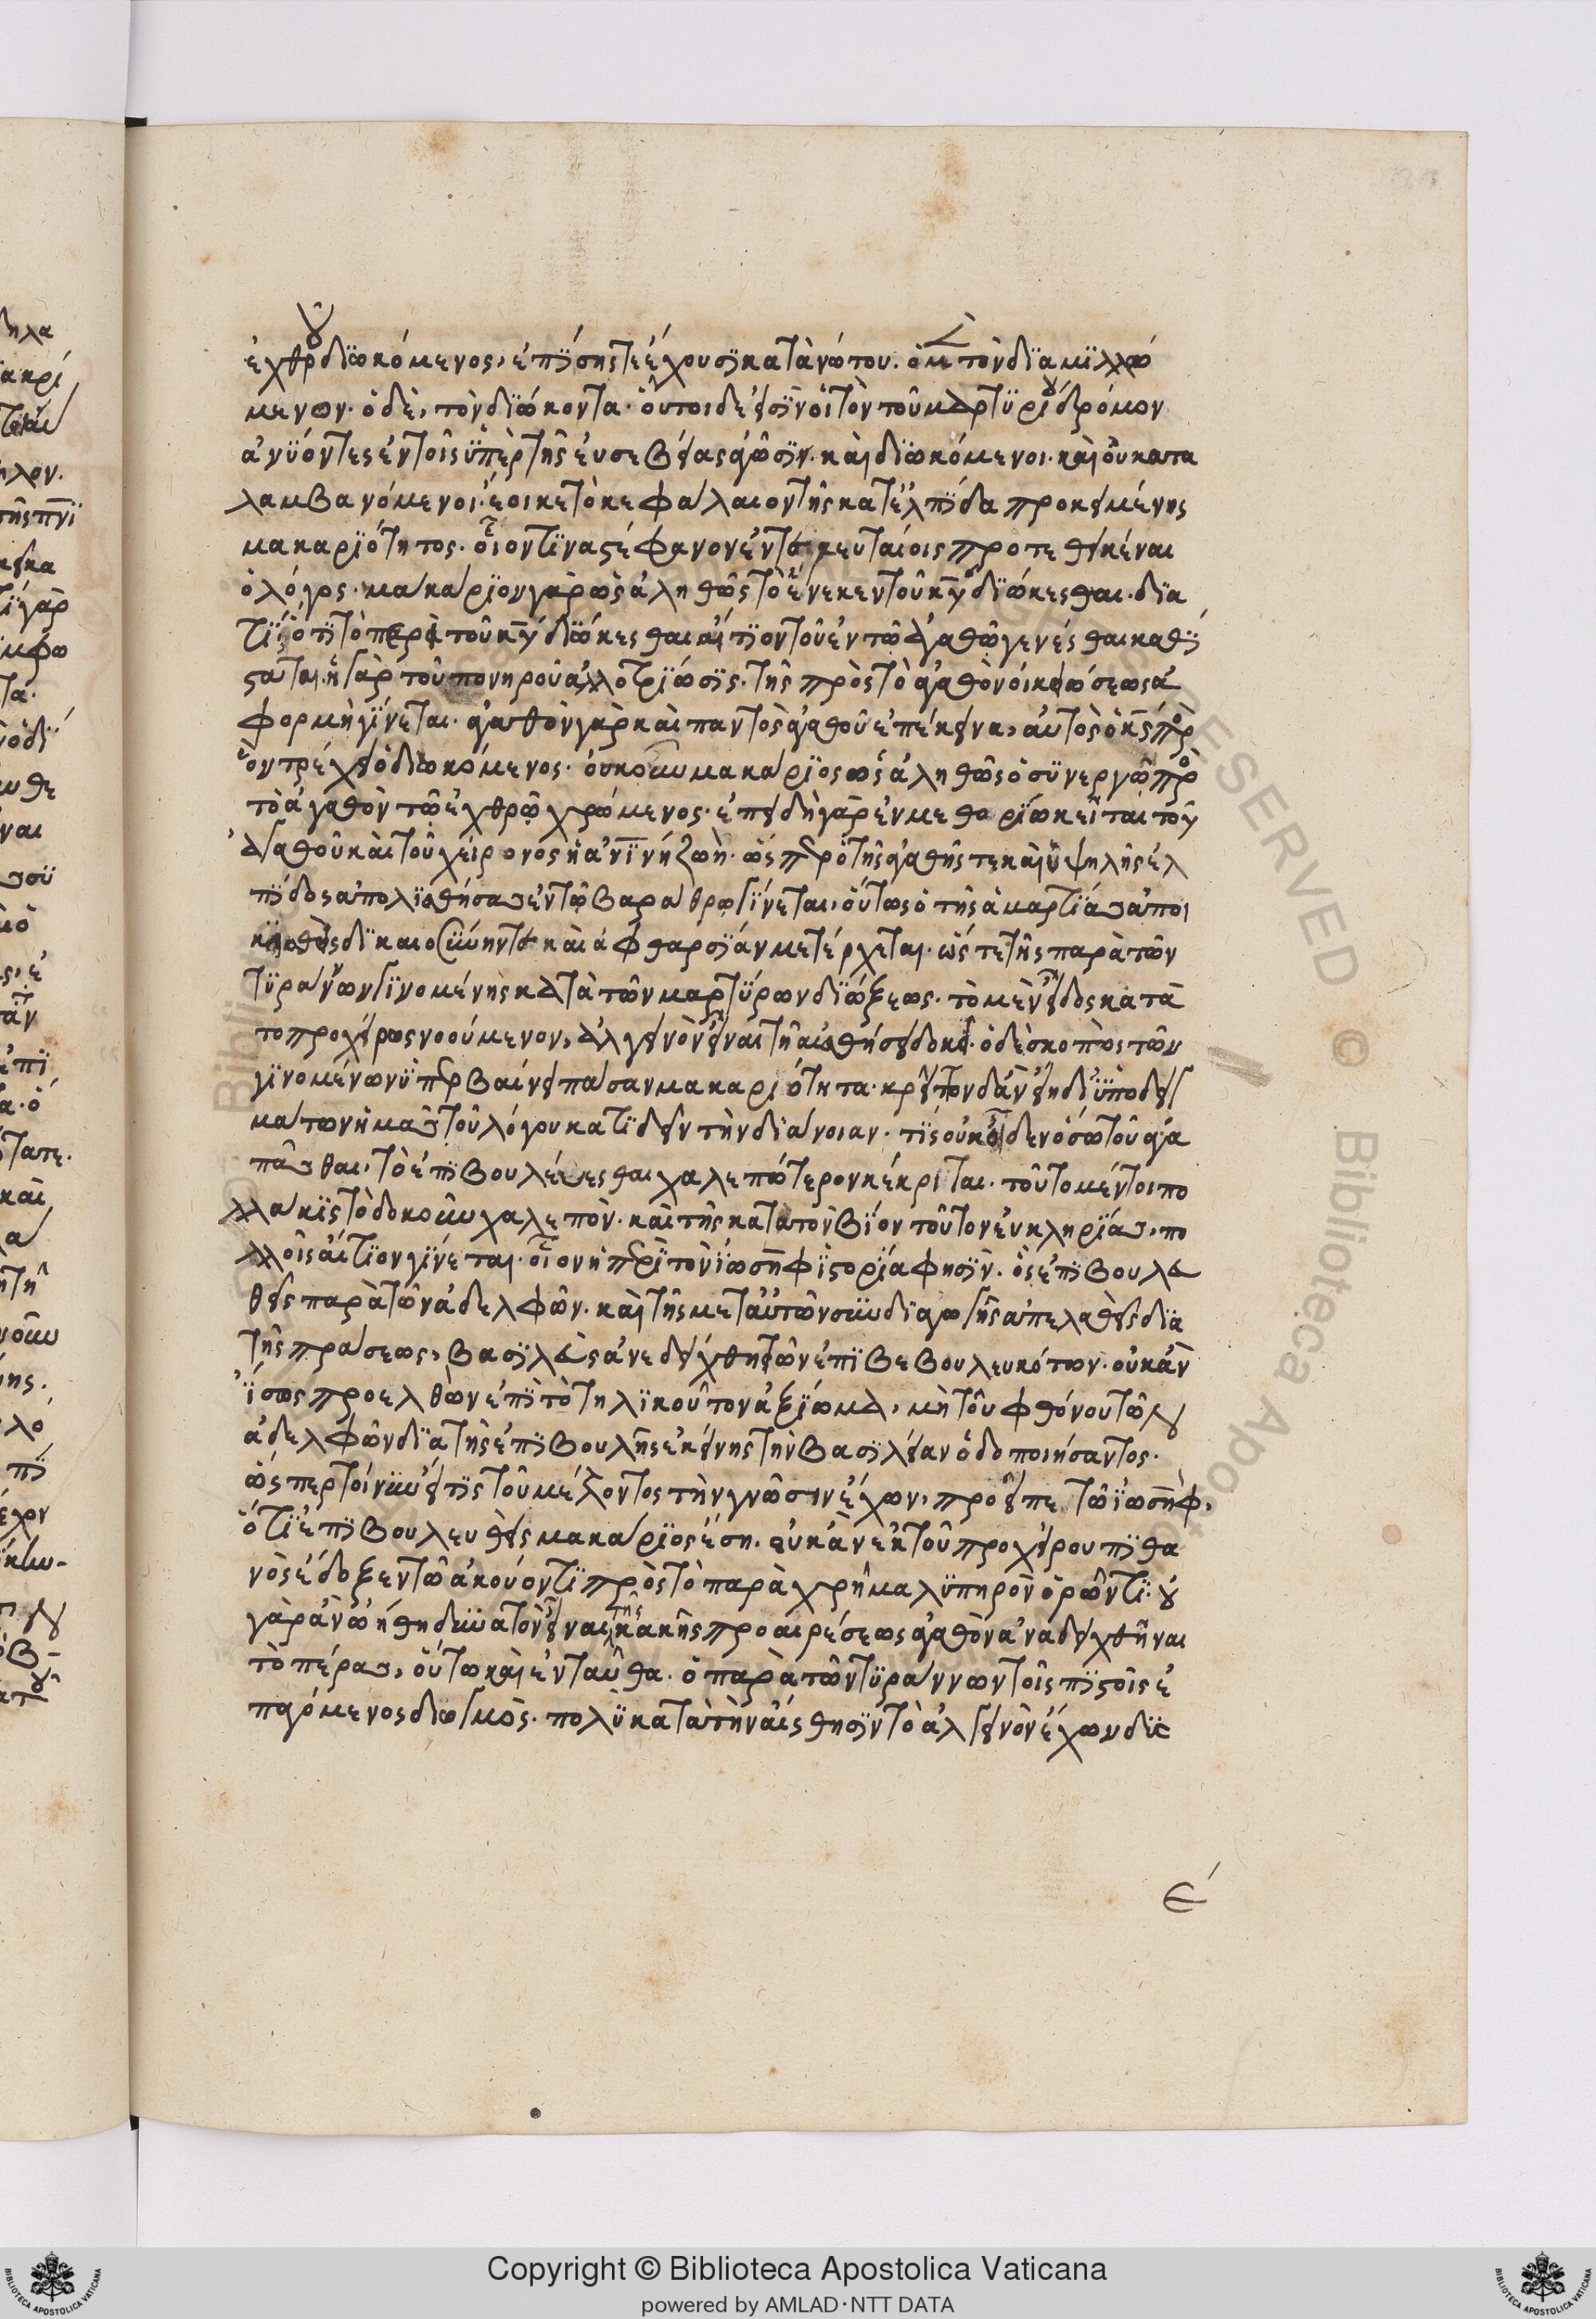 ἐχθροῦ διωκόμενος, ἐπίσης τε ἔχουσι κατὰ νώτου. ὁ μὲν τὸν διαμιλλώ
μενον. ὁ δὲ, τὸν διώκοντα. οὗτοι δέ εἰσιν οἱ τὸν τοῦ μαρτυρίου δρόμον
ἀνύοντες ἐν τοῖς ὑπὲρ τῆς εὐσεβείας ἀγῶσιν. καὶ διωκόμενοι. καὶ οὐ κατα
λαμβανόμενοι. ἔοικε τὸ κεφάλαιον τῆς κατ' ἐλπίδα προκειμένης
μακαριότητος. οἷόν τινα στέφανον ἐν τοῖς τελευταίοις προτεθεικέναι
ὁ λόγος. μακάριον γὰρ ὡς ἀληθῶς τὸ ἕνεκεν τοῦ κυ διώκεσθαι. δια
τί; ὅτι τὸ παρὰ τοῦ κακοῦ διώκεσθαι αἴτιον τοῦ ἐν τῷ ἀγαθῷ γενέσθαι καθί
σταται. ἡ γὰρ τοῦ πονηροῦ ἀλλοτρίωσις. τῆς πρὸς τὸ ἀγαθὸν οἰκειώσεως ἀ
φορμὴ γίνεται. ἀγαθὸν γὰρ καὶ παντὸς ἀγαθοῦ ἐπέκεινα, αὐτὸς ὁ κς πρὸς
ὃν τρέχει ὁ διωκόμενος. οὐκοῦν μακάριος ὡς ἀληθῶς ὁ συνεργῷ πρὸς
τὸ ἀγαθὸν τῷ ἐχθρῷ χρώμενος. ἐπειδὴ γὰρ ἐν μεθορίῳ κεῖται τοῦ
ἀγαθοῦ καὶ τοῦ χείρονος ἡ ἀνίνη ζωὴ. ὥσπερ ὁ τῆς ἀγαθῆς τε καὶ ὑψηλῆς ἐλ
πίδος ἀπολισθήσας ἐν τῷ βαράθρῳ γίνεται, οὕτως ὁ τῆς ἁμαρτίας ἀποι
κισθεὶς δικαιοσύνην τε καὶ ἀφθαρσίαν μετέρχεται. ὥστε τῆς παρὰ τῶν
τυράννων γινομένης κατὰ τῶν μαρτύρων διώξεως. τὸ μὲν εἶδος κατὰ
τὸ προχείρως νοούμενον, ἀλγεινὸν εἶναι τῇ αἰσθήσει δοκεῖ. ὁ δὲ σκοπὸς τῶν
γινομένων ὑπερβαίνει πᾶσαν μακαριότητα. κρεῖττον δ' ἂν εἴη δι' ὑποδειγ
μάτων ἡμᾶς τοῦ λόγου κατιδεῖν τὴν διάνοιαν. τίς οὐκ οἶδεν ὅσῳ τοῦ ἀγα
πᾶσθαι, τὸ ἐπιβουλεύεσθαι χαλεπώτερον κέκριται. τοῦτο μέντοι πο
λλάκις τὸ δοκοῦν χαλεπὸν. καὶ τῆς κατὰ τὸν βίον τοῦτον εὐκληρίας, πο
λλοῖς αἴτιον γίνεται. οἷον ἡ περὶ τὸν ἰωσὴφ ἱστορία φησὶν. ὃς ἐπιβουλευ
θεὶς παρὰ τῶν ἀδελφῶν. καὶ τῆς μετ' αὐτῶν συνδιαγωγῆς ἀπελαθεὶς διὰ
τῆς πράσεως, βασιλεὺς ἀνεδείχθη τῶν ἐπιβεβουλευκότων. οὐκ ἂν
ἴσως προελθὼν ἐπὶ τὸ τηλικοῦτον ἀξίωμα, μὴ τοῦ φθόνου τῶν
ἀδελφῶν διὰ τῆς ἐπιβουλῆς ἐκείνης τὴν βασιλείαν ὁδοποιήσαντος.
ὥσπερ τοίνυν εἴ τις τοῦ μέλλοντος τὴν γνῶσιν ἔχων, προεῖπε τῷ ἰωσὴφ,
ὅτι ἐπιβουλευθεὶς μακάριος ἔσῃ. οὐκ ἂν ἐκ τοῦ προχείρου πιθα
νὸς ἔδοξεν τῷ ἀκούοντι πρὸς τὸ παραχρῆμα λυπηρὸν ὁρῶντι. οὐ
γὰρ ἂν ᾠήθη δυνατὸν εἶναι τῆς κακῆς προαιρέσεως ἀγαθὸν ἀναδειχθῆναι
τὸ πέρας, οὕτω καὶ ἐνταῦθα. ὁ παρὰ τῶν τυράννων τοῖς πιστοῖς ἐ
παγόμενος διωγμὸς. πολὺ κατὰ τὴν αἴσθησιν τὸ ἀλγεινὸν ἔχων δυσ
ε΄
Copyright © Biblioteca Apostolica Vaticana
powered by AMLAD·NTT DATA